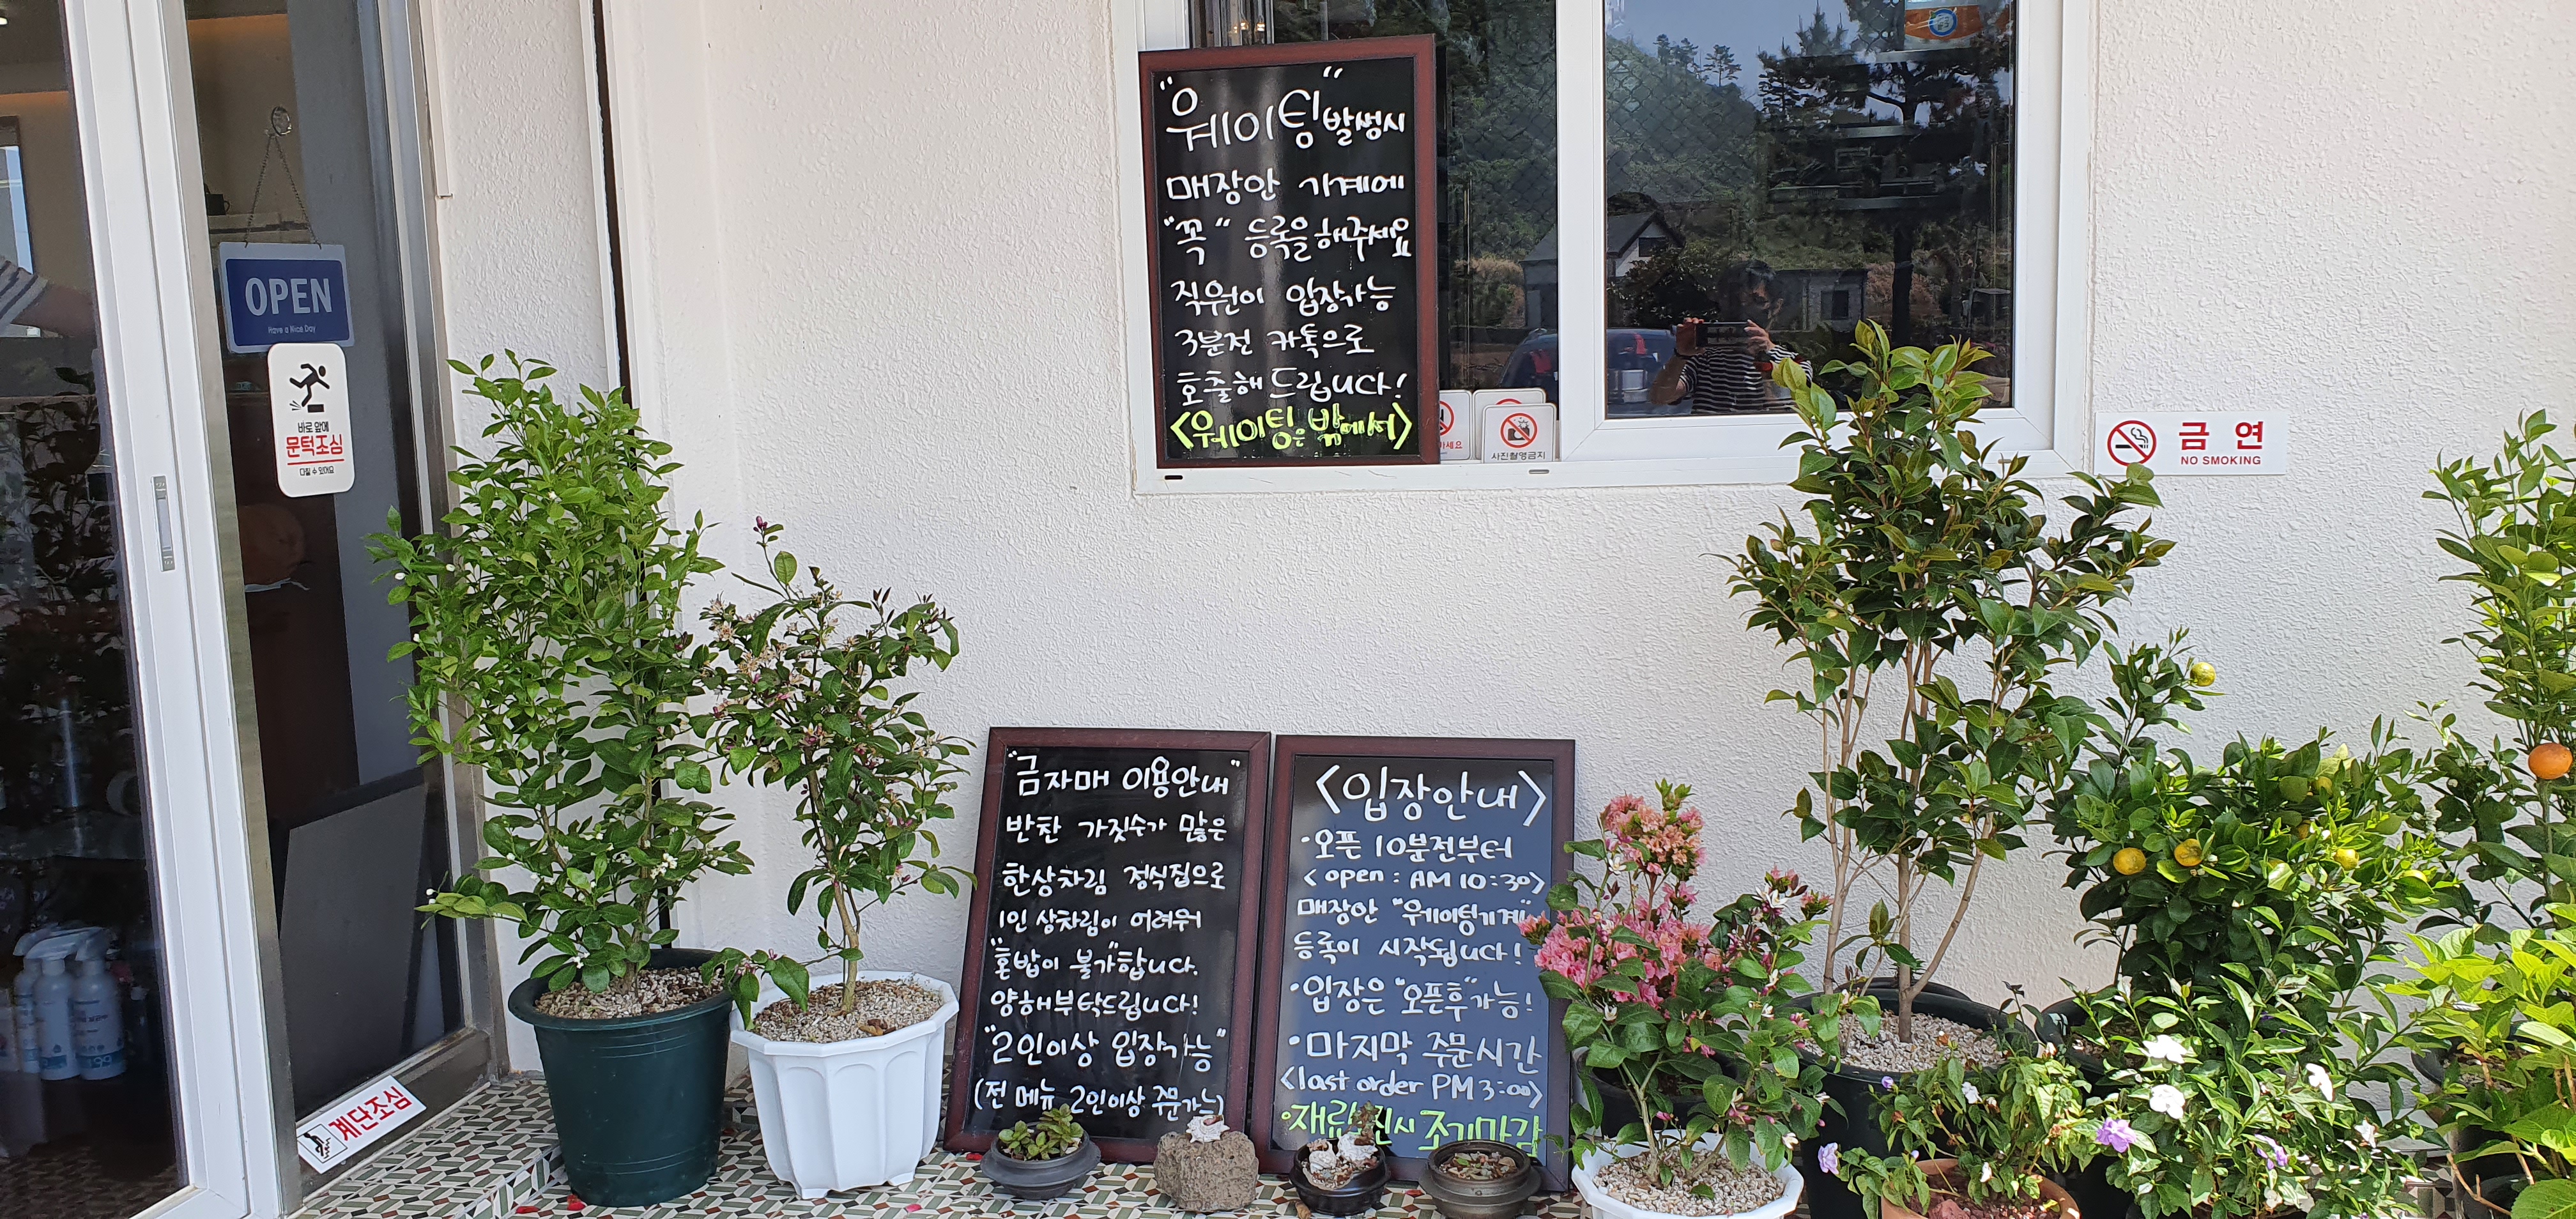 OPEN
Have a Nice Day
바로 앞에
문턱조심
다칠 수 있어요
계단조심
"웨이팅" 발생시
매장안 기계에
"꼭" 등록을해주세요
직원이 입장가능
3분전 카톡으로
호출해드립니다!
<웨이팅은 밖에서>
마세요
사진촬영금지
금연
NO SMOKING
"금자매 이용안내"
반찬 가짓수가 많은
한상차림 정식집으로
1인 상차림이 어려워
"혼밥이 불가"합니다.
양해부탁드립니다!
"2인이상 입장가능"
(전 메뉴 2인이상 주문가능)
<입장안내>
·오픈 10분전부터
<open : AM 10:30>
매장안 "웨이팅기계"
등록이 시작됩니다!
·입장은 "오픈후"가능!
·마지막 주문시간
<last order PM 3:00>
·재료소진시 조기마감